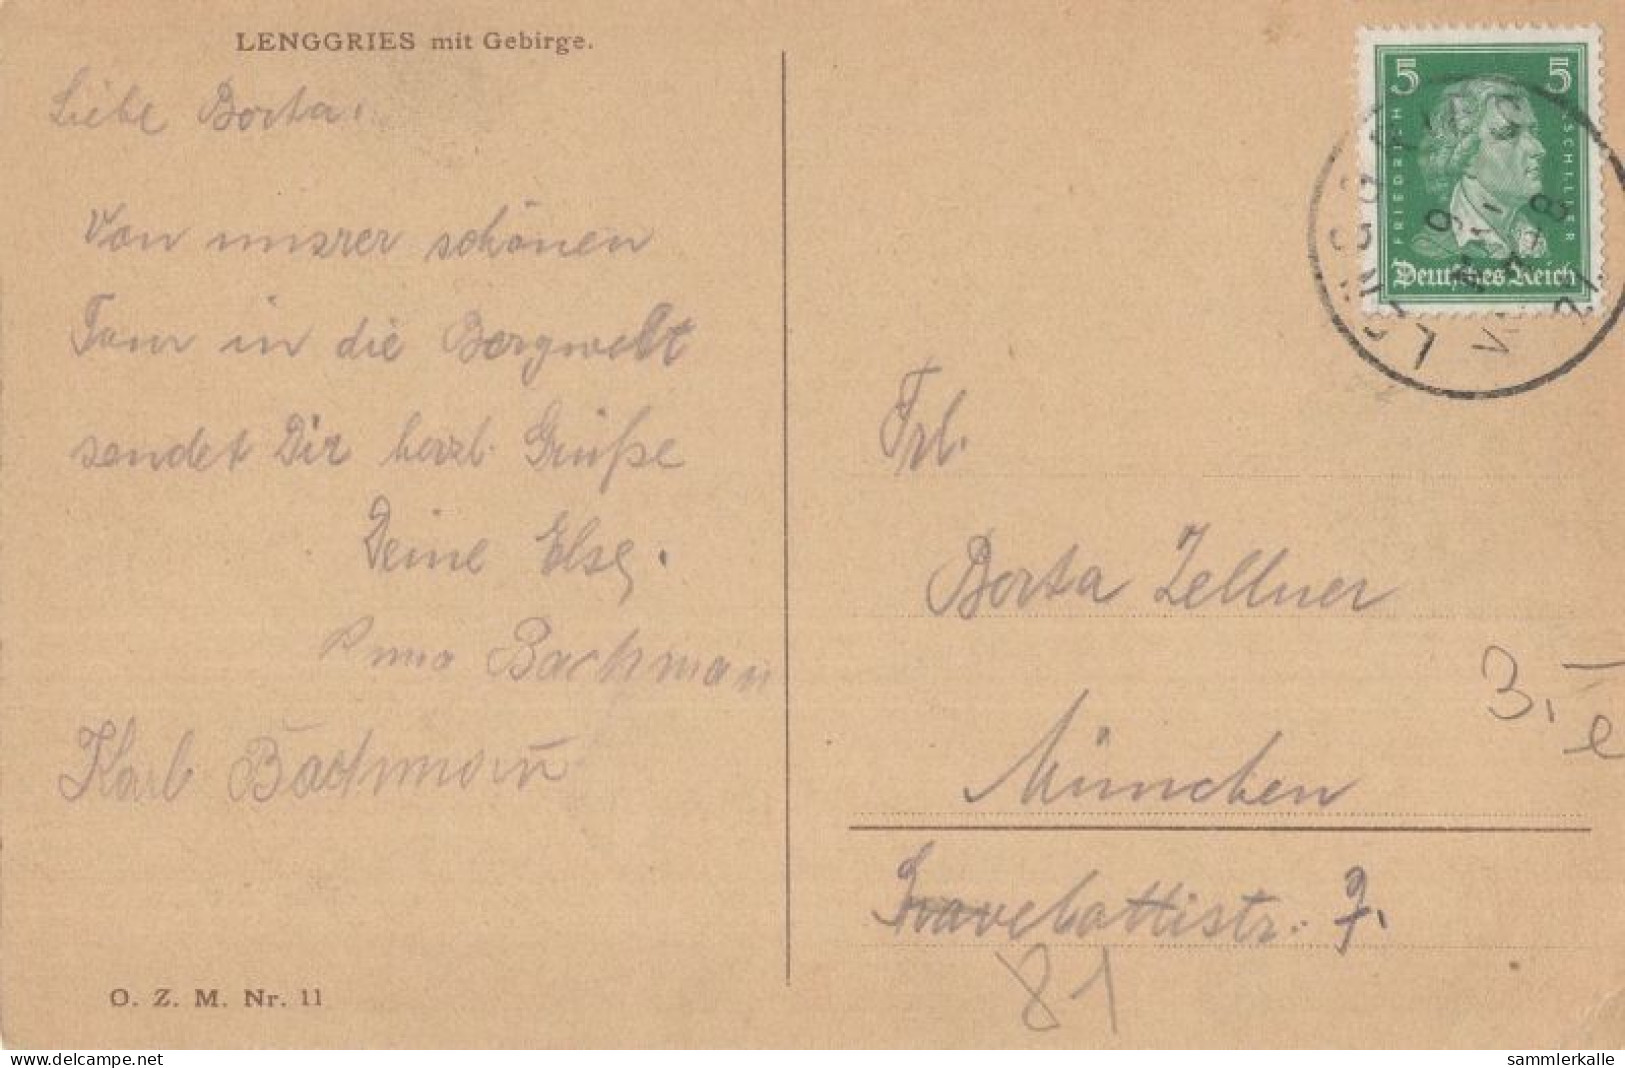 LENGGRIES mit Gebirge.
Liebe Berta!
Von unsrer schönen
Tour in die Bergwelt
sendet Dir herzl. Grüße
Deine Else.
Anna Bachmann
Karl Bachmann
O. Z. M. Nr. 11
5 5
FRIEDRICH V. SCHILLER
Deutsches Reich
LENGGRIES
Frl.
Berta Zellner
München
81
3,–
e
www.delcampe.net
sammlerkalle